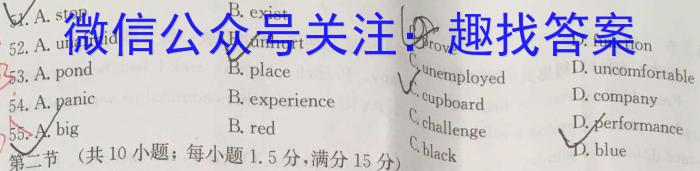 微信公众号关注：趣找答案
51. A. stop B. exist
52. A. B. unhurt C. unemployed D. uncomfortable
53. A. pond B. place C. cupboard D. company
54. A. panic B. experience C. challenge D. performance
55. A. big B. red C. black D. blue
第二节 (共10小题；每小题1.5分，满分15分)